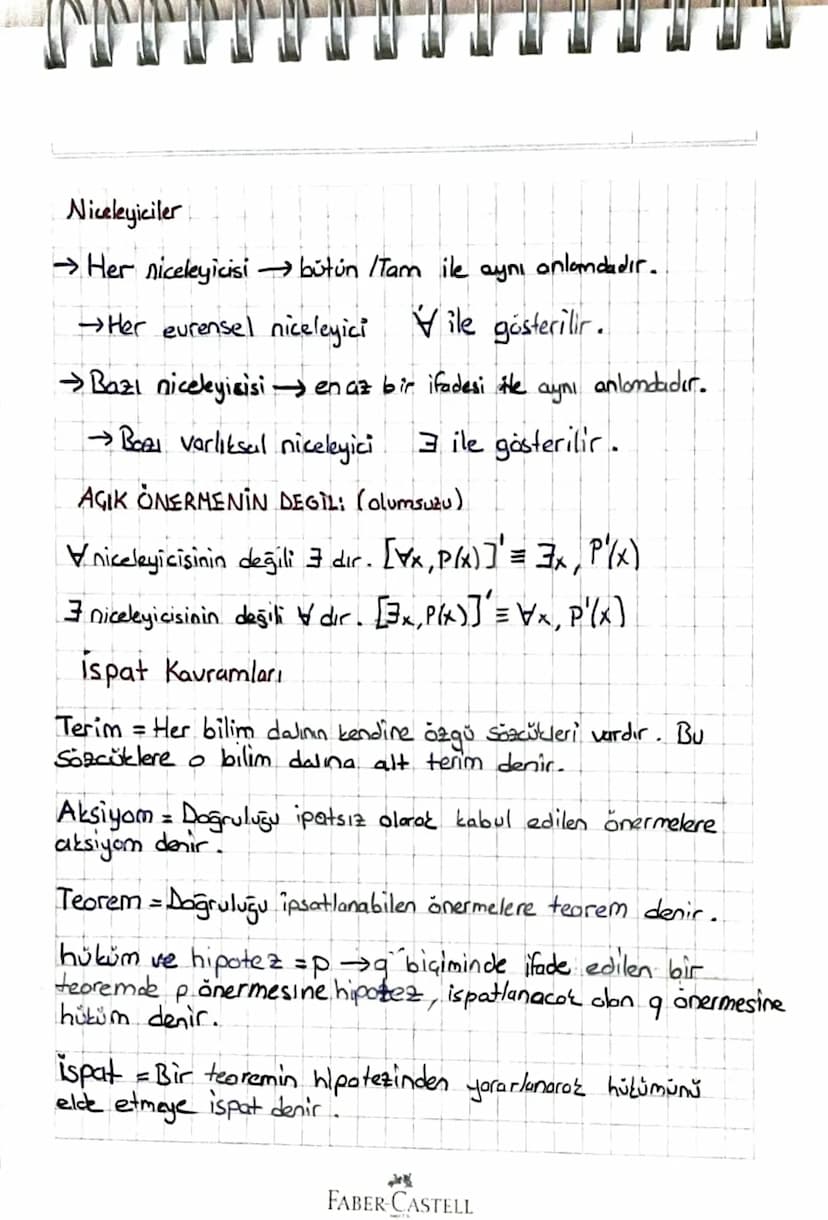 Niceleyiciler
→ Her niceleyicisi → bütün / Tam ile aynı anlamdadır.
→ Her evrensel niceleyici ∀ ile gösterilir.
→ Bazı niceleyicisi → en az bir ifadesi ile aynı anlamdadır.
→ Bazı varlıksal niceleyici ∃ ile gösterilir.
AÇIK ÖNERMENİN DEGİLİ (olumsuzu)
∀ niceleyicisinin değili ∃ dır. [∀x, P(x)]' ≡ ∃x, P'(x)
∃ niceleyicisinin değili ∀ dır. [∃x, P(x)]' ≡ ∀x, P'(x)
İspat Kavramları
Terim = Her bilim dalının kendine özgü sözcükleri vardır. Bu
sözcüklere o bilim dalına alt terim denir.
Aksiyom = Doğruluğu ipatsız olarak kabul edilen önermelere
aksiyom denir.
Teorem = Doğruluğu ipsatlanabilen önermelere teorem denir.
hüküm ve hipotez = p → q biçiminde ifade edilen bir
teoremde p önermesine hipotez, ispatlanacak olan q önermesine
hüküm denir.
İspat = Bir teoremin hipotezinden yararlanarak hükümünü
elde etmeye ispat denir.
FABER-CASTELL